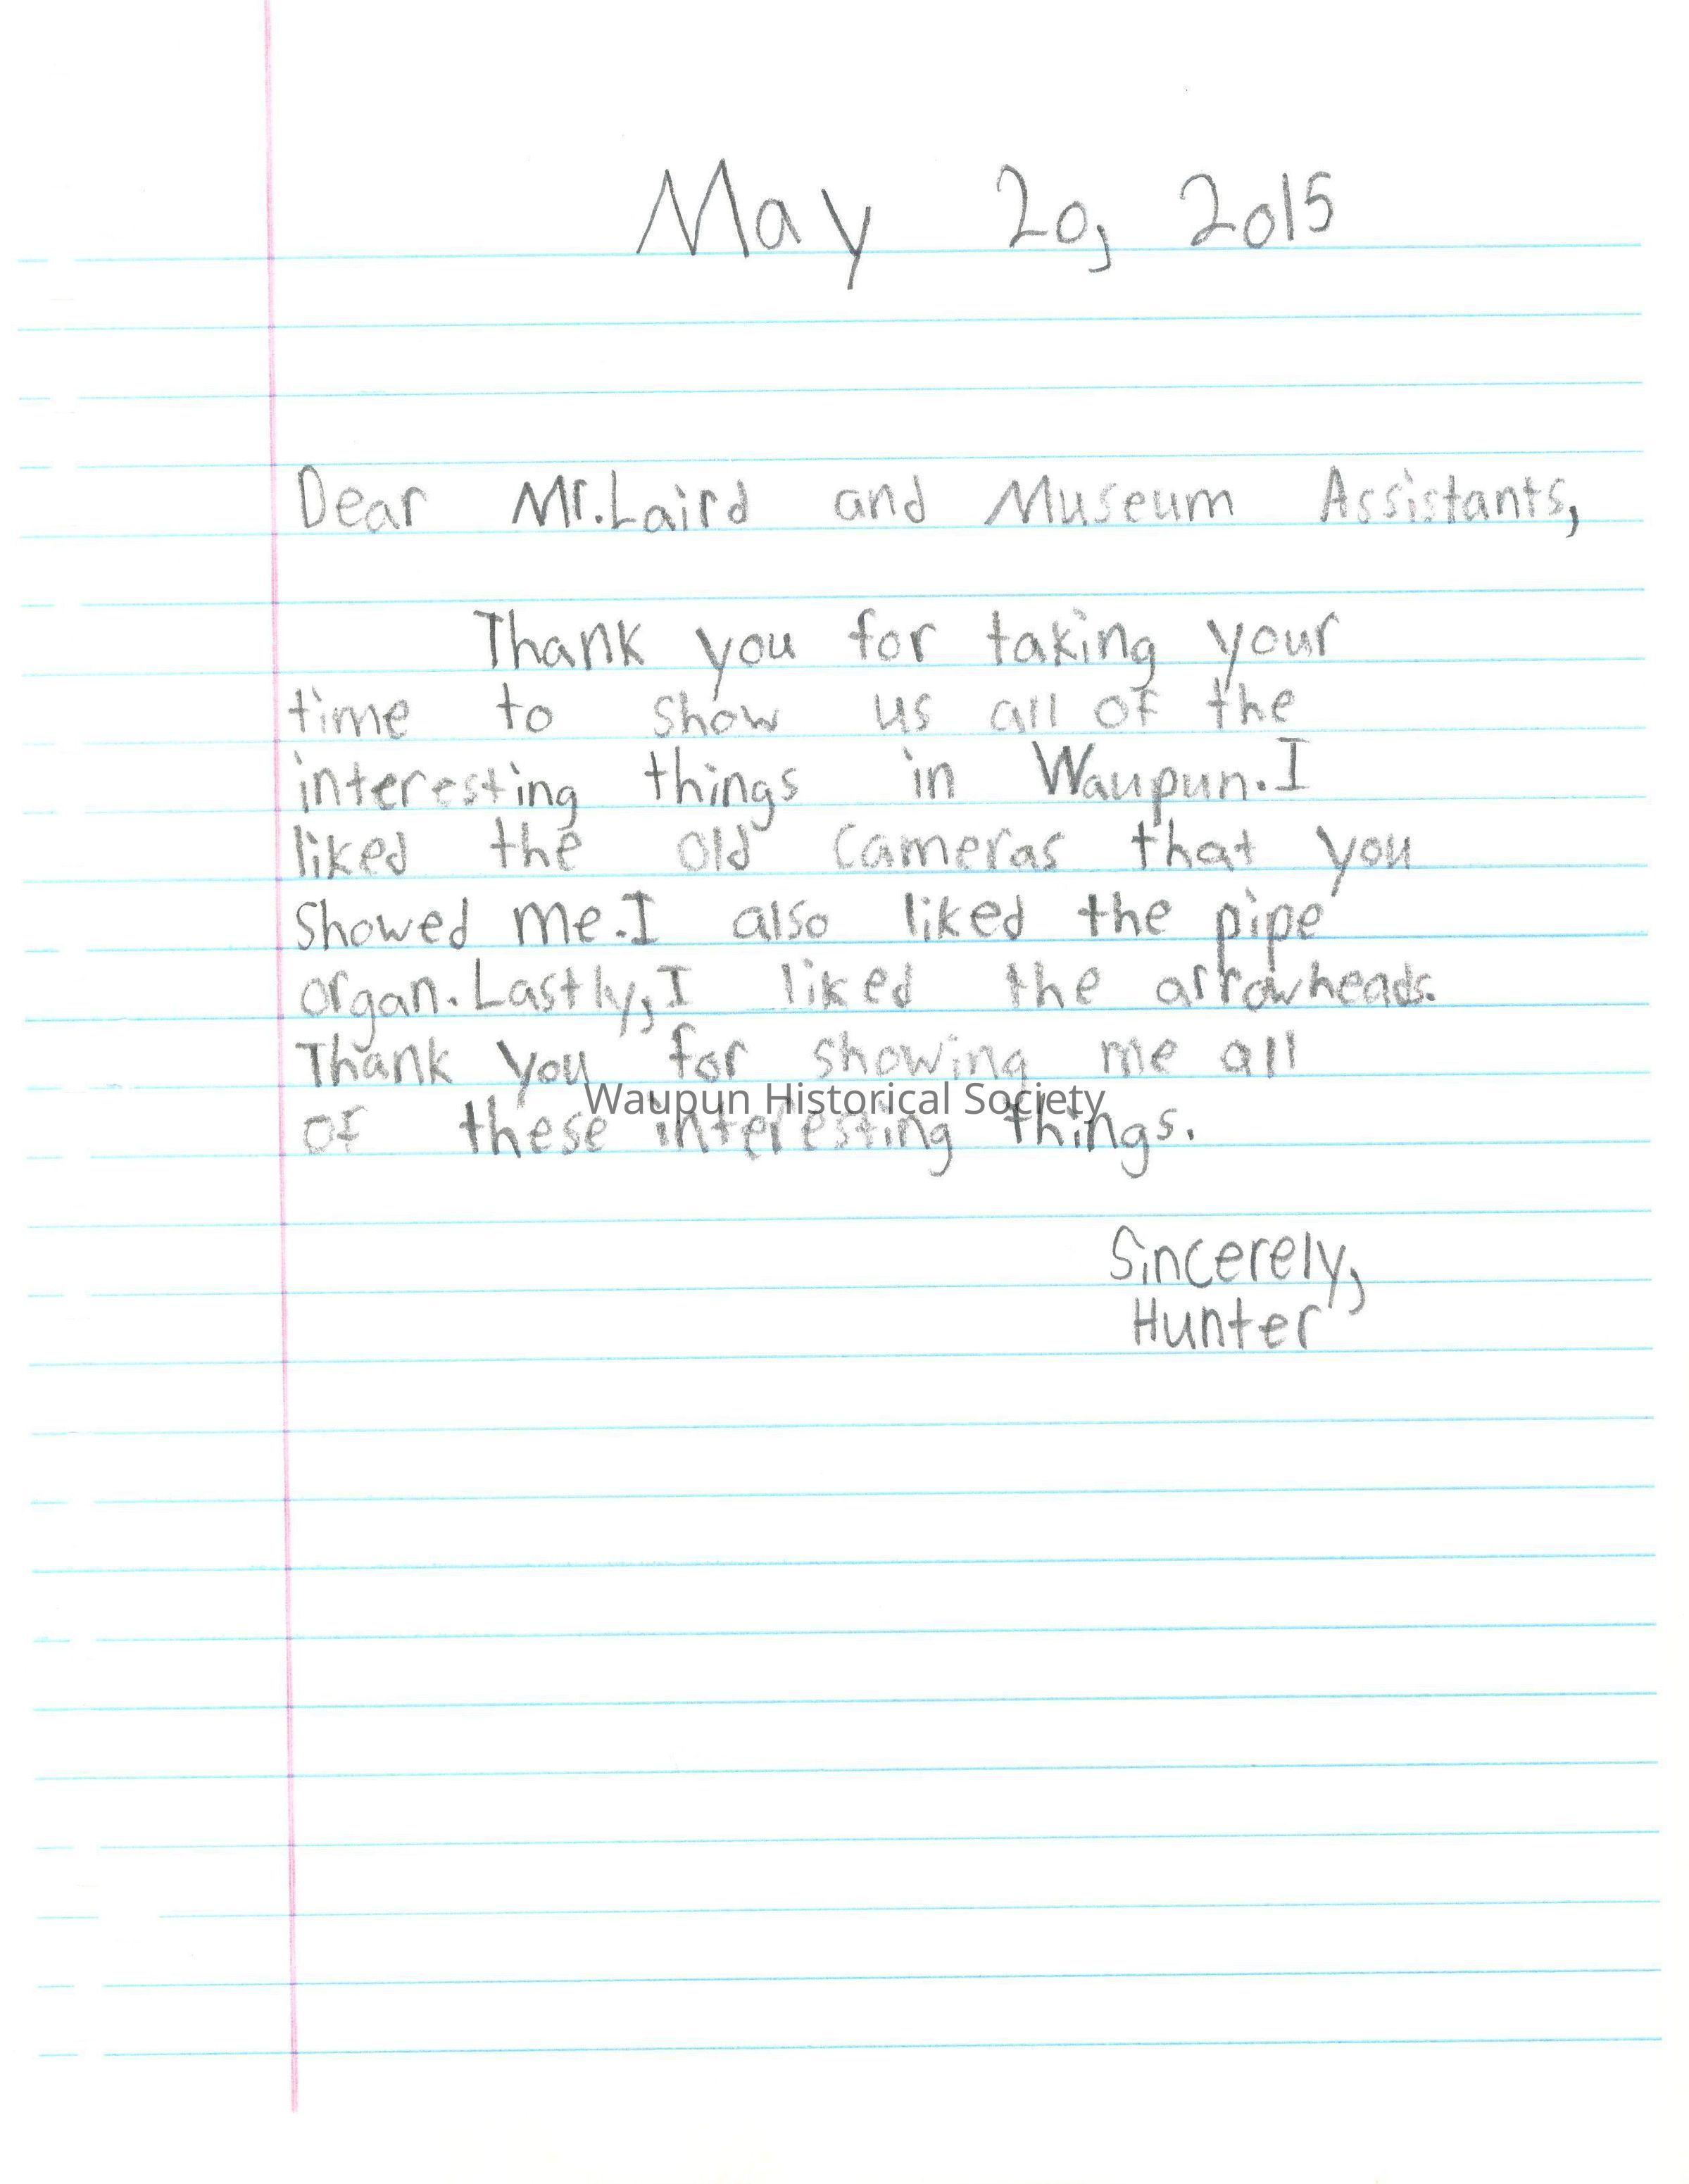 May 20, 2015
Dear Mr. Laird and Museum Assistants,
Thank you for taking your
time to show us all of the
interesting things in Waupun. I
liked the old cameras that you
showed me. I also liked the pipe
organ. Lastly, I liked the arrowheads.
Thank you for showing me all
Waupun Historical Society
of these interesting things.
Sincerely,
Hunter